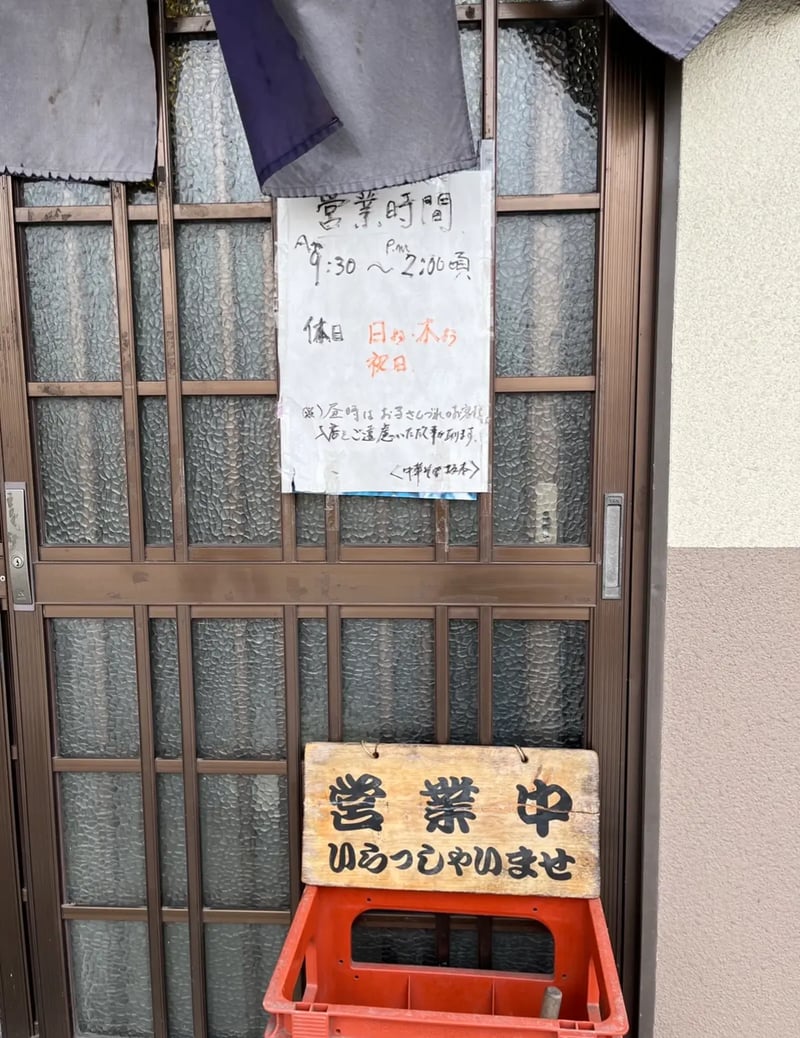 営業時間
A.m P.m.
9:30 〜 2:00頃
休日 日お・木お
祝日
(※) 昼時はお子さんづれのお客様
入店をご遠慮いただく事があります。
<中華そば 坂本>
営業中
いらっしゃいませ